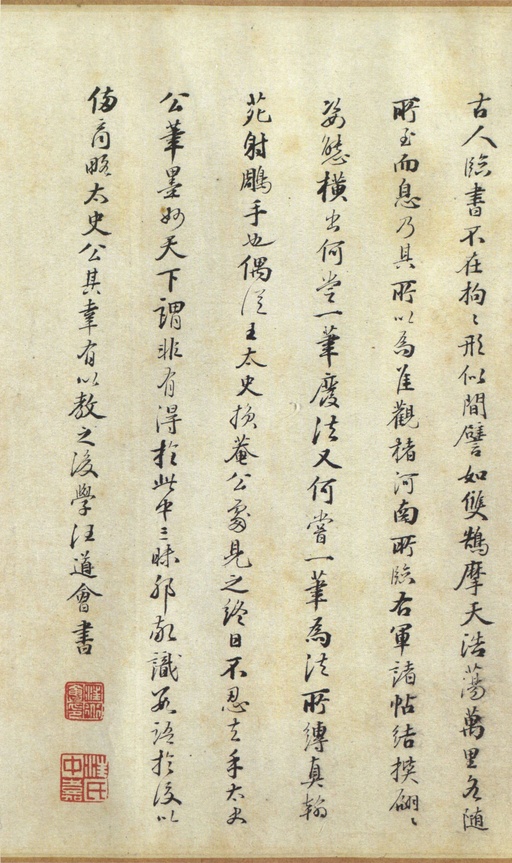 古人臨書不在拘〻形似間譬如雙鵠摩天浩蕩萬里各随
所至而息乃其所以為佳觀褚河南所臨右軍諸帖結搆翩〻
姿態橫出何嘗一筆廢法又何嘗一筆為法所縛真翰
苑射鵰手也偶從王太史損菴公處見之終日不忍去手太史
公筆墨妙天下謂非有得於此中三昧邪敬識數語於後以
備商略太史公其幸有以教之後學汪道會書
汪氏中嘉